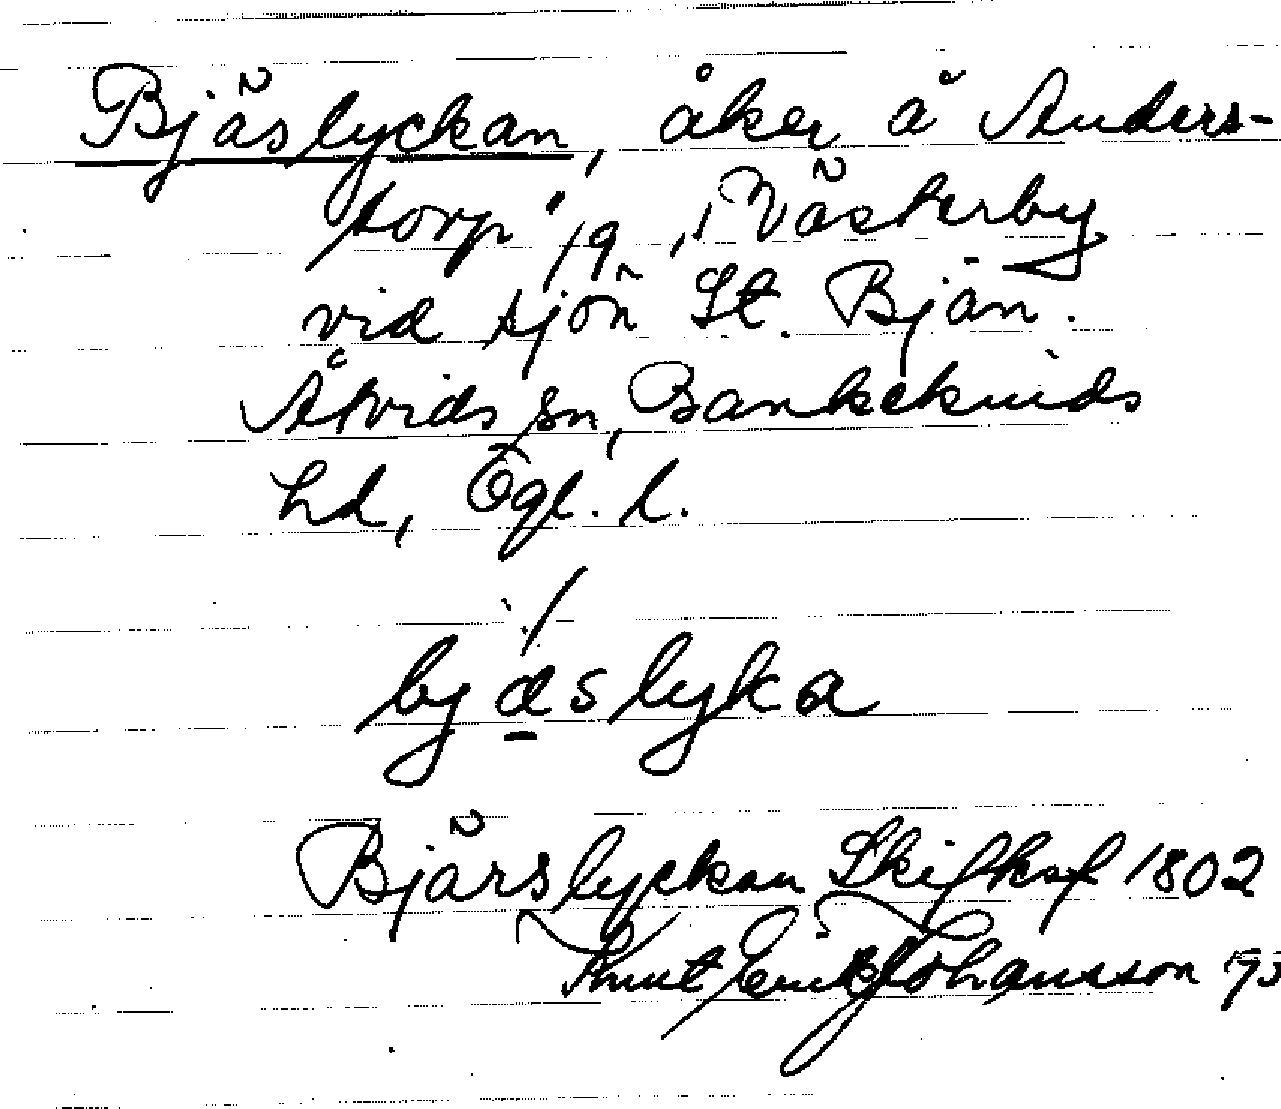 Bjäslyckan, åker å Anders-
torp 1/9, i Västerby
vid sjön St. Bjän.
Åtvids sn, Bankekinds
hd, Ögl. l.
./
bjäslyka
Bjärslyckan Skifksf 1802
Knut Erik Johansson